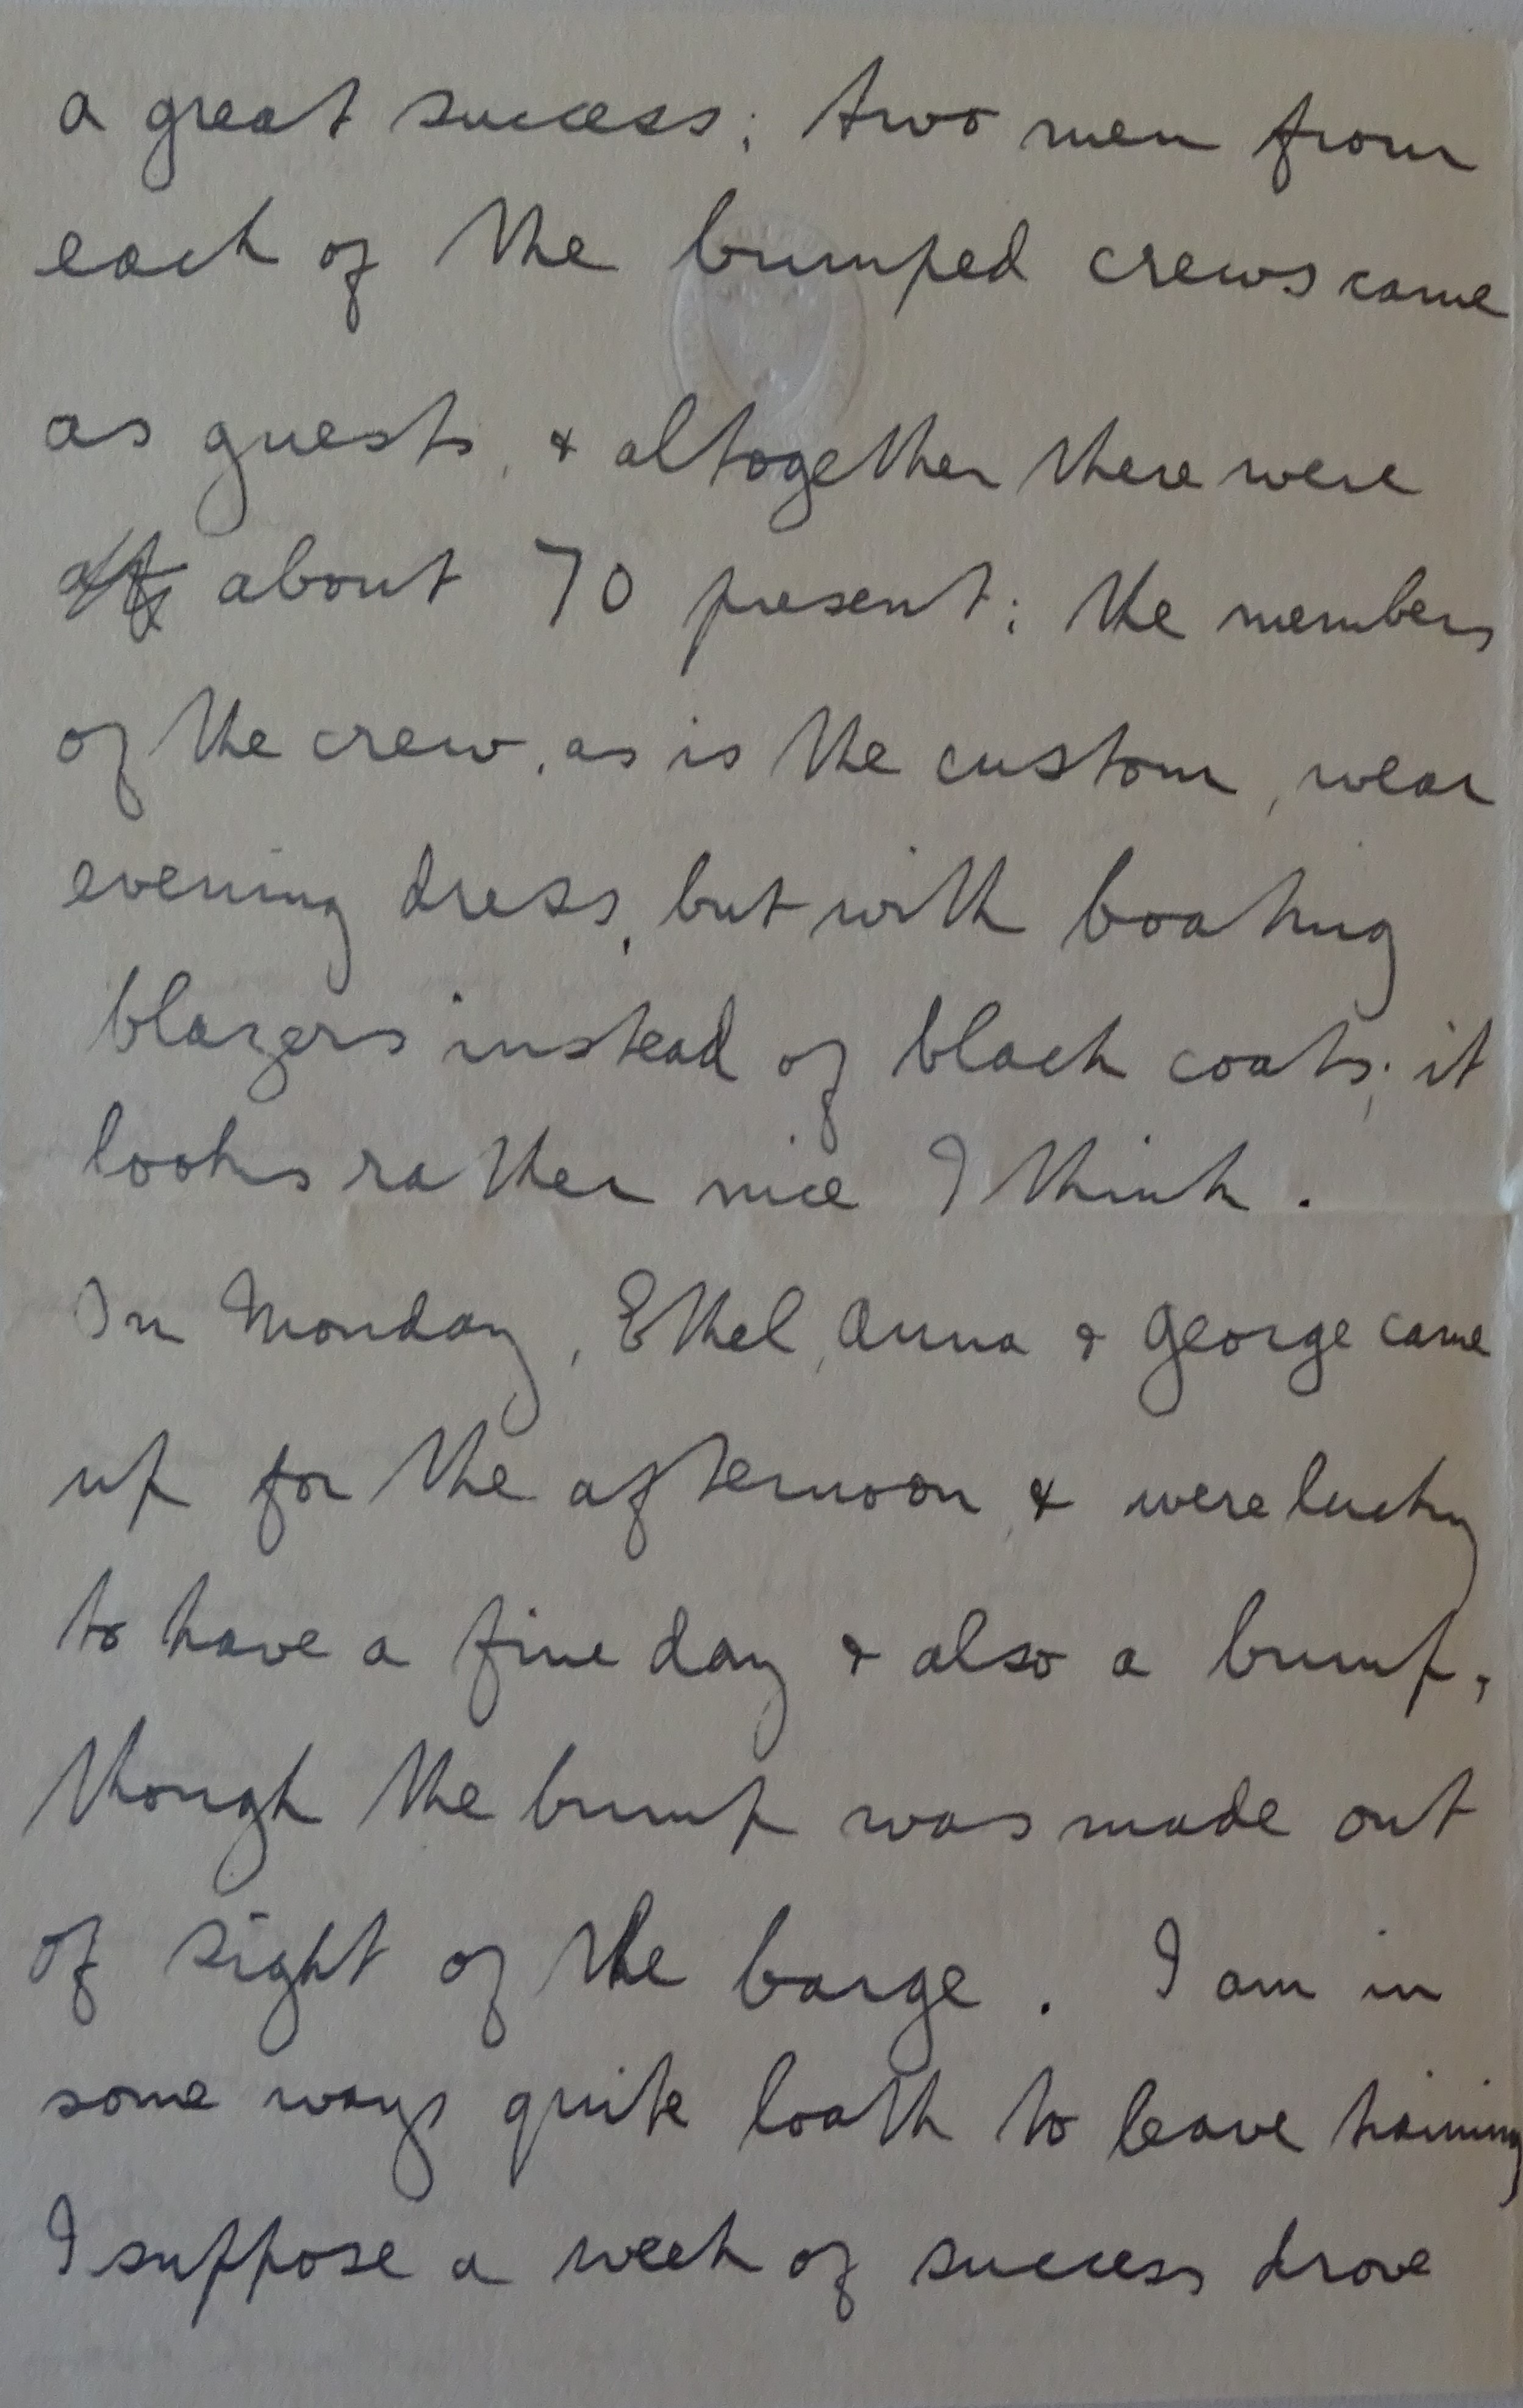 a great success; two men from
each of the bumped crews came
as guests, & altogether there were
about 70 present; the members
of the crew, as is the custom, wear
evening dress, but with boating
blazers instead of black coats; it
looks rather nice I think.
On Monday, Ethel, Anna & George came
up for the afternoon, & were lucky
to have a fine day & also a bump,
though the bump was made out
of sight of the barge. I am in
some ways quite loath to leave training
I suppose a week of success drove